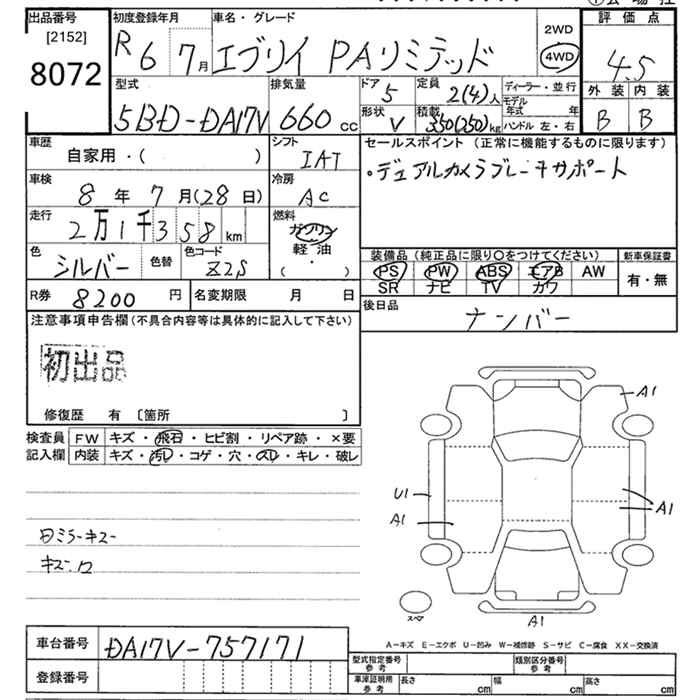 出品番号 初度登録年月 車名・グレード 評価点
[2152] 8072 R6 7月 エブリイ PAリミテッド 2WD 4WD 4.5
型式 排気量 ドア 5 定員 2(4)人 ディーラー・並行 外装 内装
5BD-DA17V 660cc 形状 V 積載 350(250)kg モデル年式 年 ハンドル 左・右 B B
車歴 自家用・( ) シフト IAT セールスポイント(正常に機能するものに限ります)
車検 8年7月(28日) 冷房 AC ・デュアルカメラブレーキサポート
走行 2万1千358km 燃料 ガソリン 軽油 ( ・ )
色 シルバー 色替 色コード Z2S 装備品(純正品に限り○をつけてください) 新車保証書
PS PW ABS エアB AW 有・無
SR ナビ TV カワ
R券 8200円 名変期限 月 日 後日品 ナンバー
注意事項申告欄(不具合内容等は具体的に記入して下さい)
初出品
修復歴 有 〔箇所 〕
検査員 FW キズ・飛石・ヒビ割・リペア跡・×要
記入欄 内装 キズ・汚レ・コゲ・穴・スレ・キレ・破レ
A1
U1
A1
A1
A1
スペア
キズ
A-キズ E-エクボ U-凹み W-補修跡 S-サビ C-腐食 XX-交換済
車台番号 DA17V-757171 型式指定番号 参考 類別区分番号 参考
登録番号 車庫証明用 参考 長さ cm 幅 cm 高さ cm